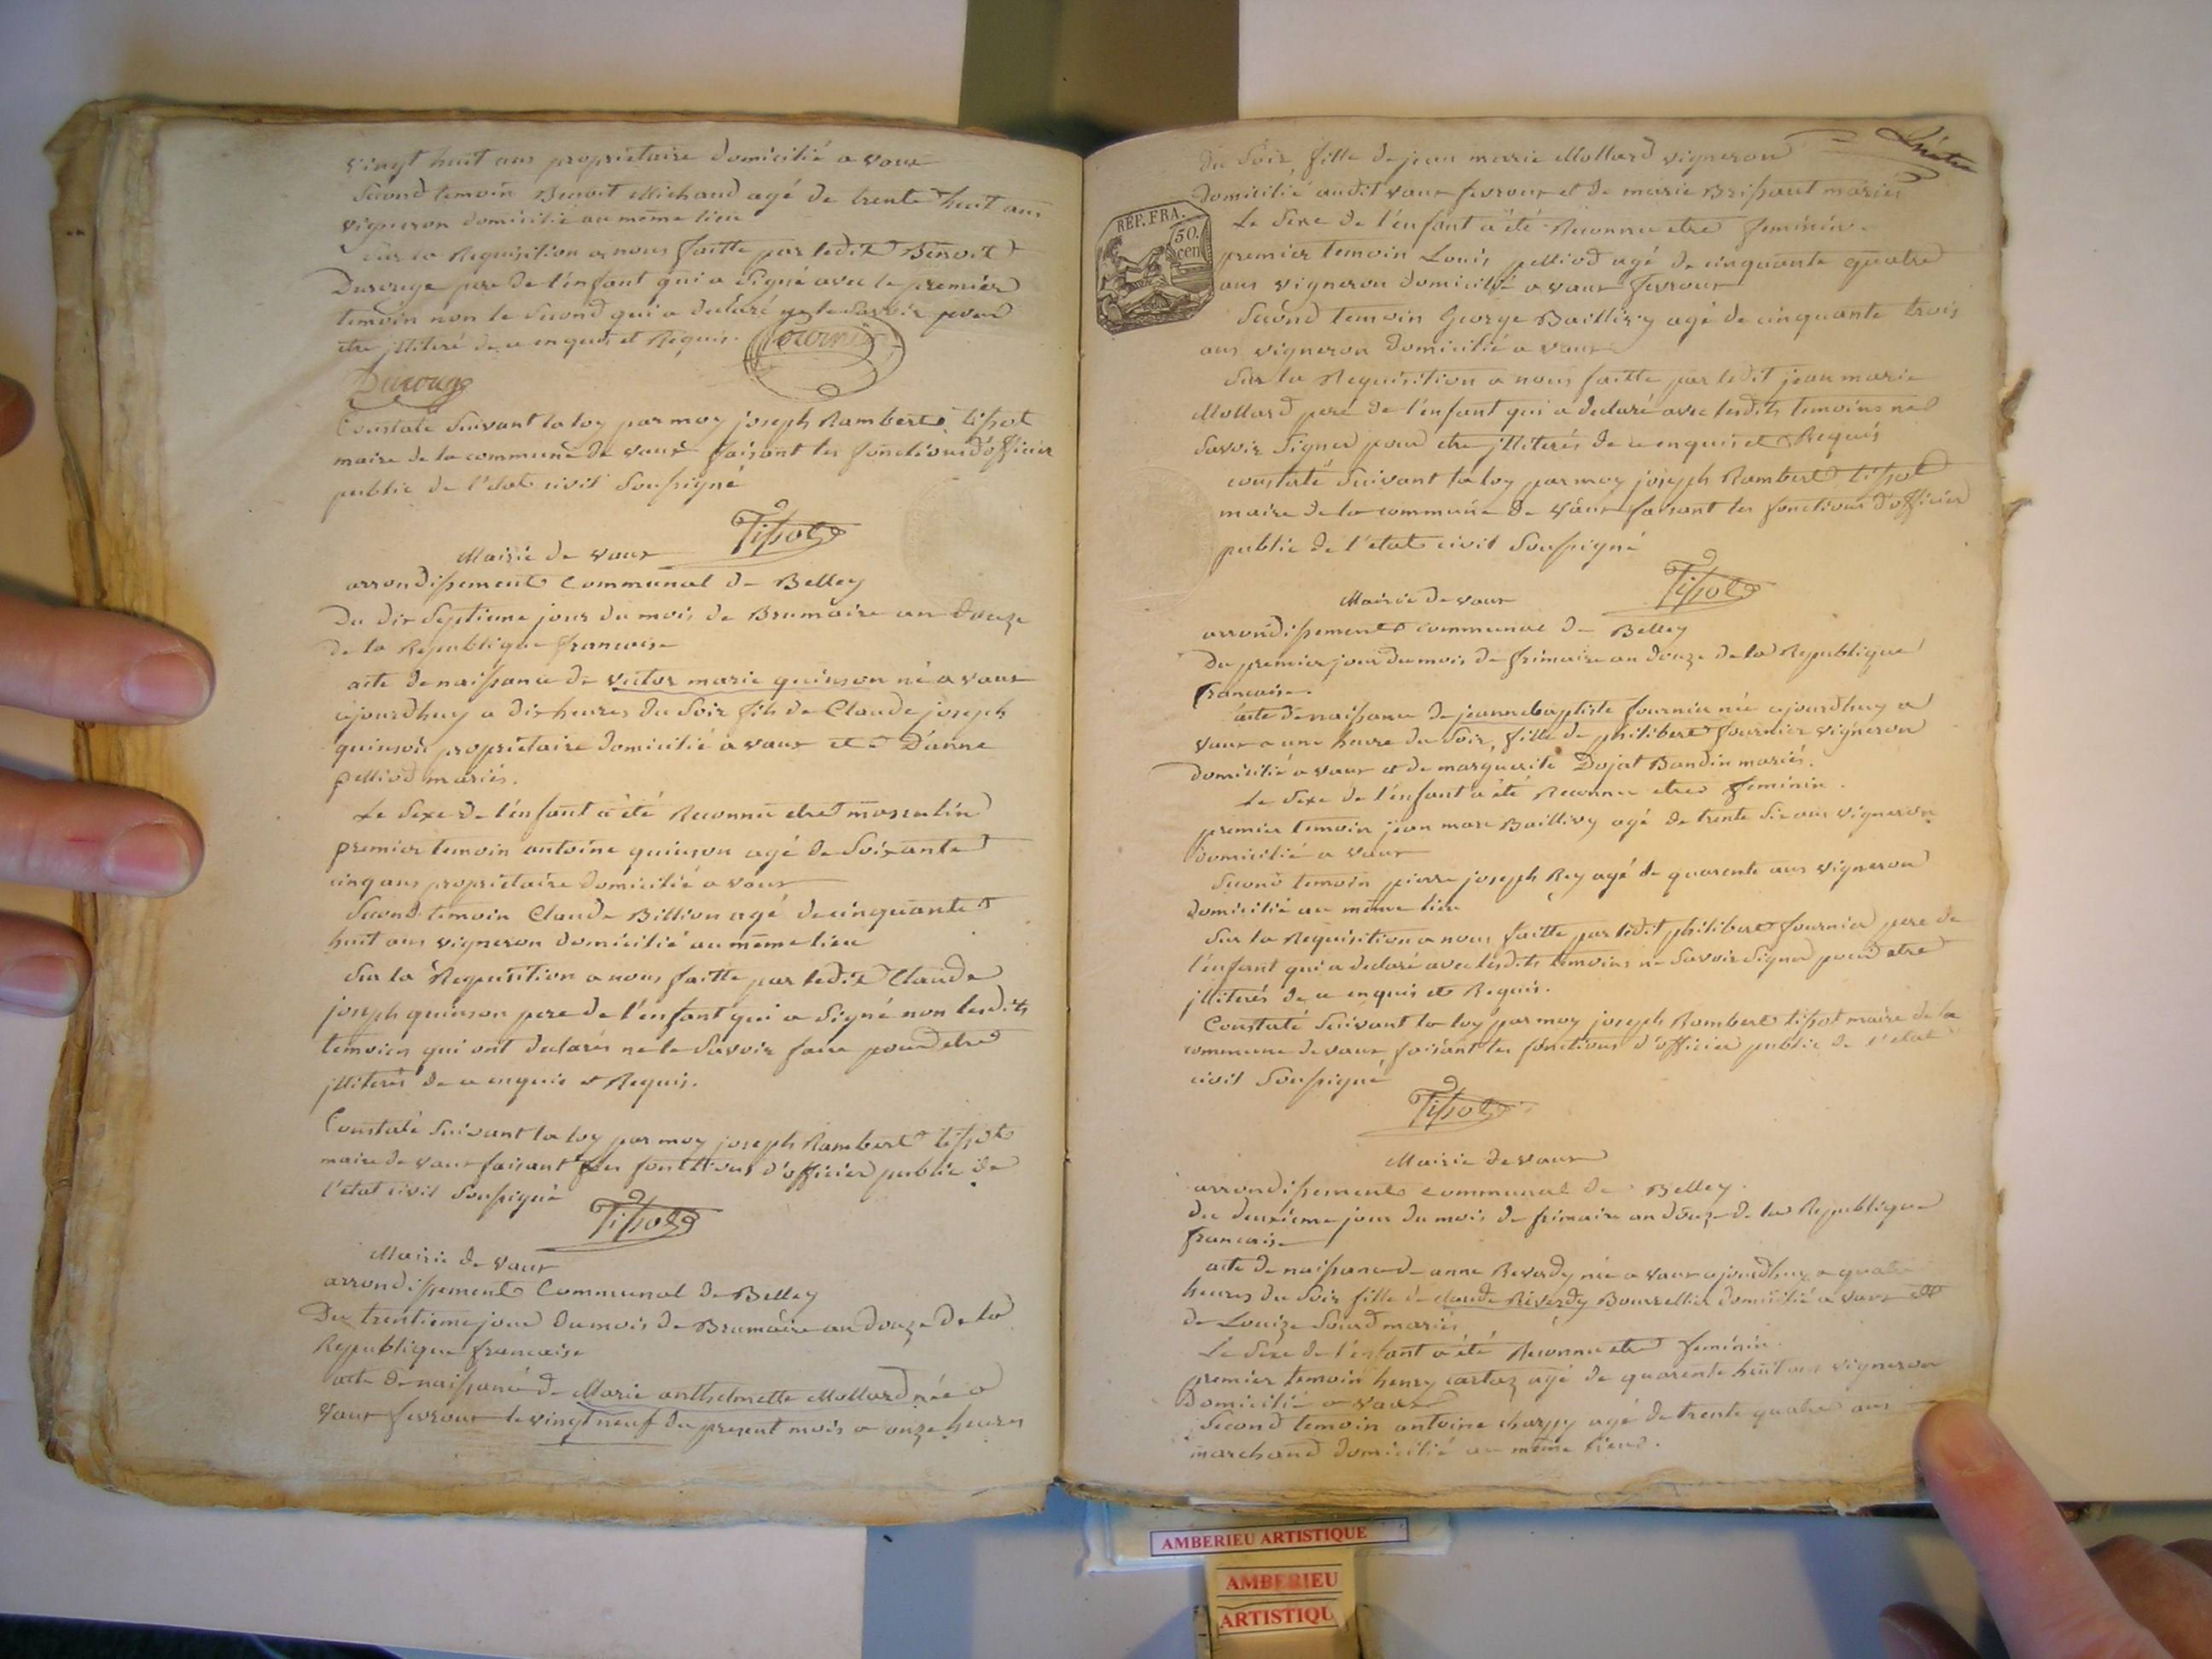 vingt huit ans proprietaire domicilié a vaux
Second temoin Benoit Michaud agé de trente huit ans
vigneron domicilié au même lieu
Sur la Requisition a nous faitte par ledit Benoit
pere de l'enfant qui a Signé avec le premier
temoin non le Second qui a declaré ne le Savoir pour
etre jlliteré de ce enquis et Requis.
Constaté Suivant la loy par moy joseph Rambert tissot
maire de la commune de vaux faisant les fonctions d'officier
public de l'etat civil Soussigné
Tissot
Mairie de vaux
arrondissement Communal de Belley
Du dix Septieme jour du mois de Brumaire an douze
de la Republique francaise
acte de naissance de victor marie quinson né a vaux
ajourdhuy a dix heures du Soir fils de Claude joseph
quinson proprietaire domicilié a vaux et D'anne
pelliod mariés.
Le Sexe de l'enfant a été Reconnu etre masculin
premier temoin antoine quinson agé de Soixante
cinq ans proprietaire domicilié a vaux
Second temoin Claude Billion agé de cinquante
huit ans vigneron domicilié au même lieu
Sur la Requisition a nous faitte par ledit Claude
joseph quinson pere de l'enfant qui a Signé non lesdits
temoins qui ont declarés ne le Savoir faire pour etre
jlliterés de ce enquis et Requis.
Constaté Suivant la loy par moy joseph Rambert tissot
maire de vaux faisant les fonctions d'officier public de
l'etat civil Soussigné
Tissot
Mairie de vaux
arrondissement Communal de Belley
Du trentieme jour du mois de Brumaire an douze de la
Republique francaise
acte de naissance de Marie anthelmette Mollard née a
Vaux fevroux le vingt neuf du present mois a onze heures
du Soir, fille de jean marie Mollard vigneron
domicilié audit vaux fevroux et de marie Brissaut mariés
Le Sexe de l'enfant a été Reconnu etre feminin
REP. FRA.
50.
cen
premier temoin Louis pelliod agé de cinquante quatre
ans vigneron domicilié a vaux fevroux
Second temoin George Baillivy agé de cinquante trois
ans vigneron domicilié a vaux
Sur la Requisition a nous faitte par ledit jean marie
Mollard pere de l'enfant qui a declaré avec lesdits temoins ne
Savoir Signer pour etre jlliterés de ce enquis et Requis
constaté Suivant la loy par moy joseph Rambert tissot
maire de la commune de vaux faisant les fonctions d'officier
public de l'etat civil Soussigné
Tissot
Mairie de vaux
arrondissement communal de Belley
Du premier jour du mois de frimaire an douze de la Republique
francaise.
acte de naissance de jeanne baptiste fournier née ajourdhuy a
vaux a une heure du Soir, fille de philibert fournier vigneron
domicilié a vaux et de marguerite Dojat Bandin mariés.
Le Sexe de l'enfant a été Reconnu etre feminin.
premier temoin jean marc Baillivy agé de trente Six ans vigneron
domicilié a vaux
Second temoin pierre joseph Rey agé de quarente ans vigneron
domicilié au même lieu
Sur la Requisition a nous faitte par ledit philibert fournier pere de
l'enfant qui a declaré avec lesdits temoins ne Savoir Signer pour etre
jlliterés de ce enquis et Requis.
Constaté Suivant la loy par moy joseph Rambert tissot maire de la
commune de vaux faisant les fonctions d'officier public de l'etat
civil Soussigné
Tissot
Mairie de vaux
arrondissement communal de Belley.
du deuxieme jour du mois de frimaire an douze de la Republique
francaise
acte de naissance de anne Reverdy née a vaux ajourdhuy a quatre
heures du Soir fille de claude Réverdy Bourrellier domicilié a vaux et
de Louize Sourd mariés
Le Sexe de l'enfant a été Reconnu etre feminin.
premier temoin henry cartaz agé de quarente huit ans vigneron
Domicilié a vaux
Second temoin antoine charpy agé de trente quatre ans
marchand domicilié au même lieu.
AMBERIEU ARTISTIQUE
AMBERIEU
ARTISTIQU